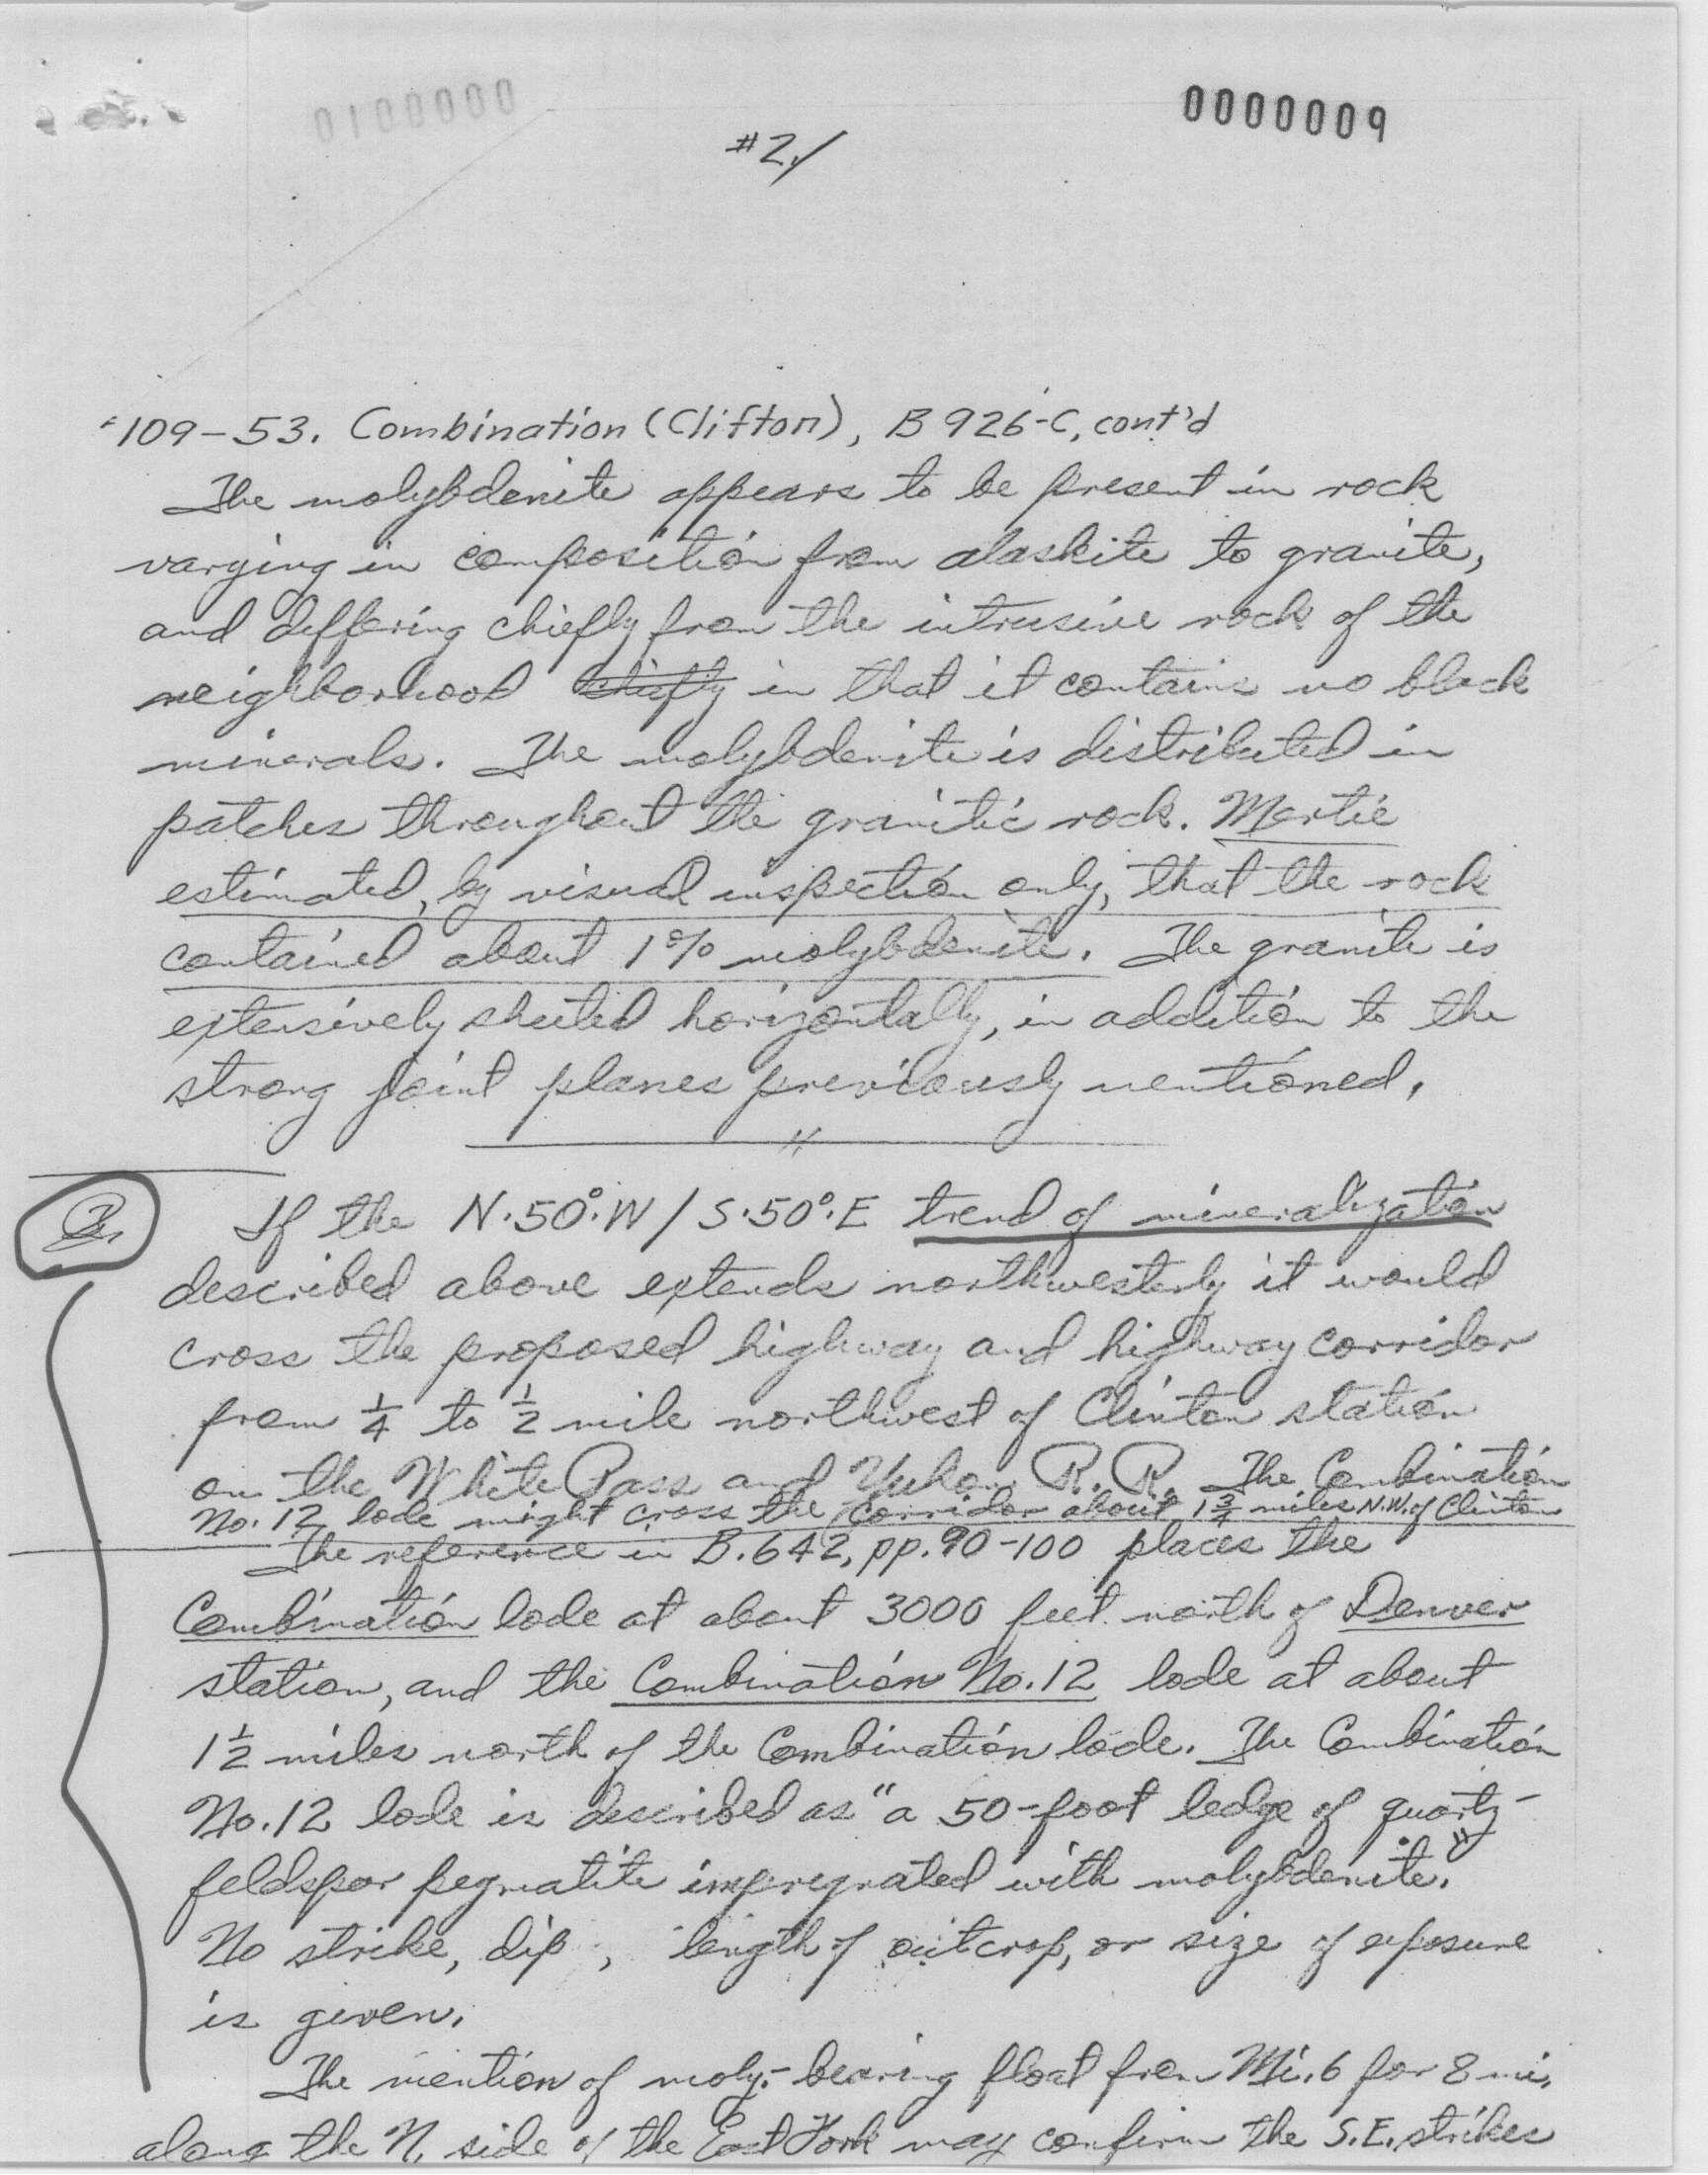 0100000
0000009
#2./
109-53. Combination (Clifton), B 926-C, cont'd
The molybdenite appears to be present in rock
varying in composition from alaskite to granite,
and differing chiefly from the intrusive rock of the
neighborhood chiefly in that it contains no black
minerals. The molybdenite is distributed in
patches throughout the granitic rock. Mertie
estimated, by visual inspection only, that the rock
contained about 1% molybdenite. The granite is
extensively sheeted horizontally, in addition to the
strong joint planes previously mentioned.
If the N.50°.W / S.50°.E trend of mineralization
described above extends northwesterly it would
cross the proposed highway and highway corridor
from 1/4 to 1/2 mile northwest of Clinton station
on the White Pass and Yukon R.R. The Combination
No. 12 lode might cross the corridor about 1 3/4 miles N.W. of Clinton
The reference in B.642, pp. 90-100 places the
Combination lode at about 3000 feet north of Denver
station, and the Combination No. 12 lode at about
1 1/2 miles north of the Combination lode. The Combination
No. 12 lode is described as "a 50-foot ledge of quartz-
feldspar pegmatite impregnated with molybdenite."
No strike, dip, length of outcrop, or size of exposure
is given.
The mention of moly.-bearing float from Mi. 6 for 8 mi.
along the N. side of the East Fork may confirm the S.E. strikes